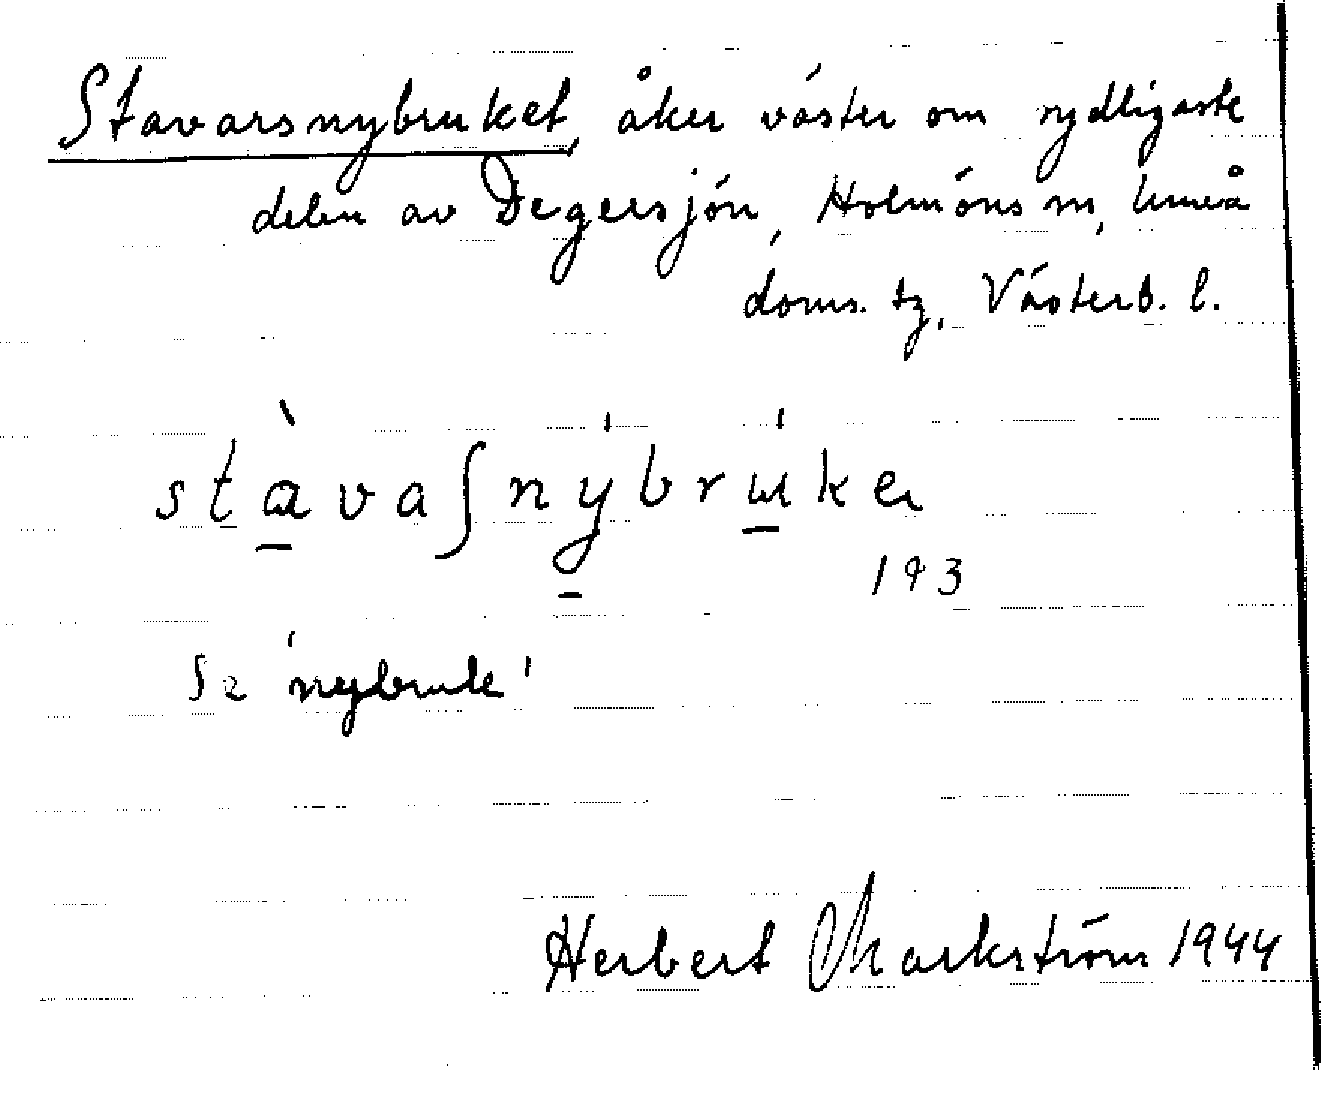 Stavarsnybruket, åker väster om sydligaste
delen av Degersjön, Holmöns sn, Umeå
doms. tg, Västerb. l.
stàvaʃnýbrúke
193
Se 'nybruk'
Herbert Markström 1944